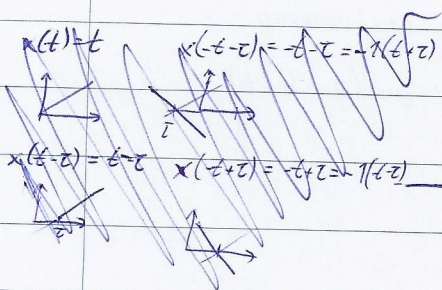 x(t)=t
x(-t-2) = -t-2 = -1(t+2)
x(t-2) = t-2
x(-t+2) = -t+2 = -1(t-2)
2